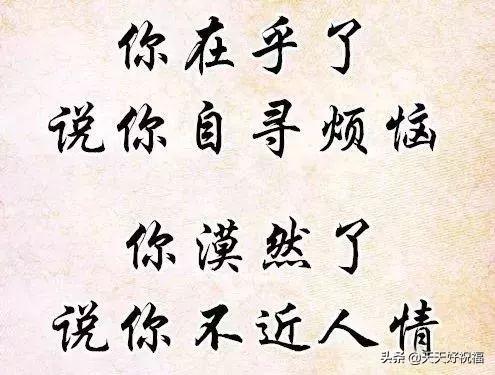 你在乎了
说你自寻烦恼
你漠然了
说你不近人情
头条@天天好祝福